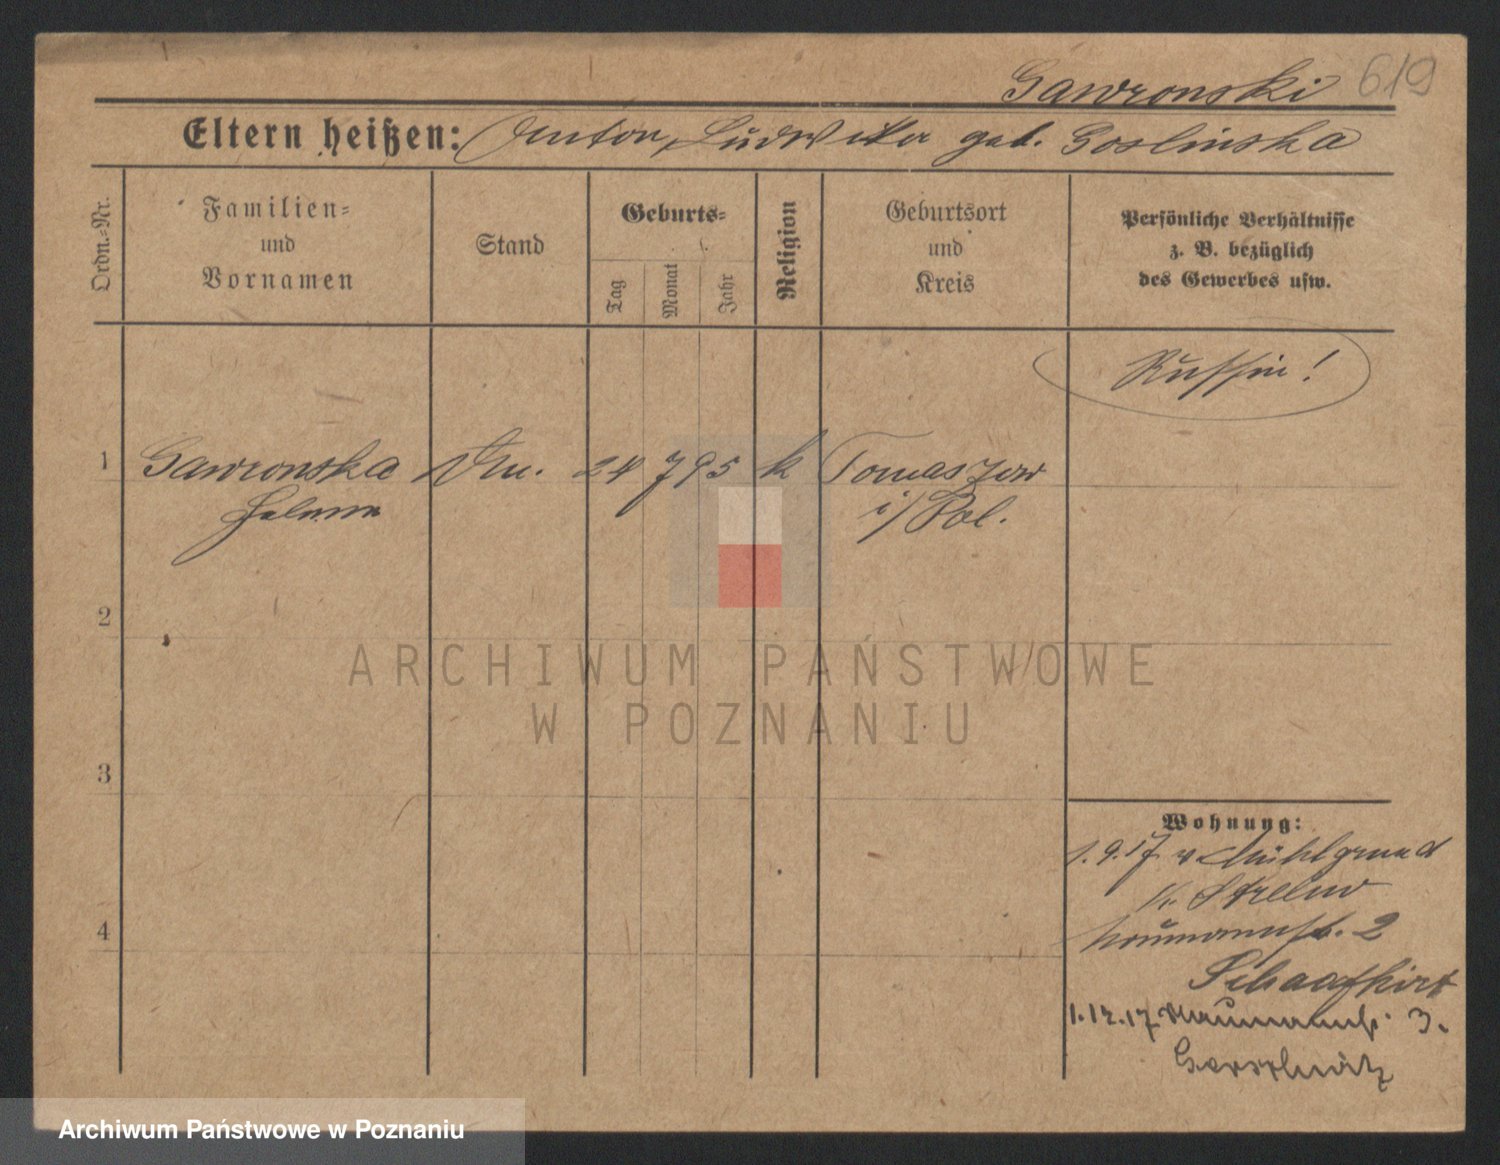 Gawronski 619
Eltern heißen: Anton, Ludwika geb. Goslinska
Ordn.-Nr.
Familien-
und
Vornamen
Stand
Geburts-
Tag
Monat
Jahr
Religion
Geburtsort
und
Kreis
Persönliche Verhältnisse
z. B. bezüglich
des Gewerbes usw.
Russin!
1 Gawronska 24 7 95 k Tomaszow
Helena i/Pol.
2
3
4
Wohnung:
1.9.17 v Mühlgrund
Kr. Strelno
Naumannstr. 2
1.12.17 Naumannstr. 3.
ARCHIWUM PAŃSTWOWE
W POZNANIU
Archiwum Państwowe w Poznaniu